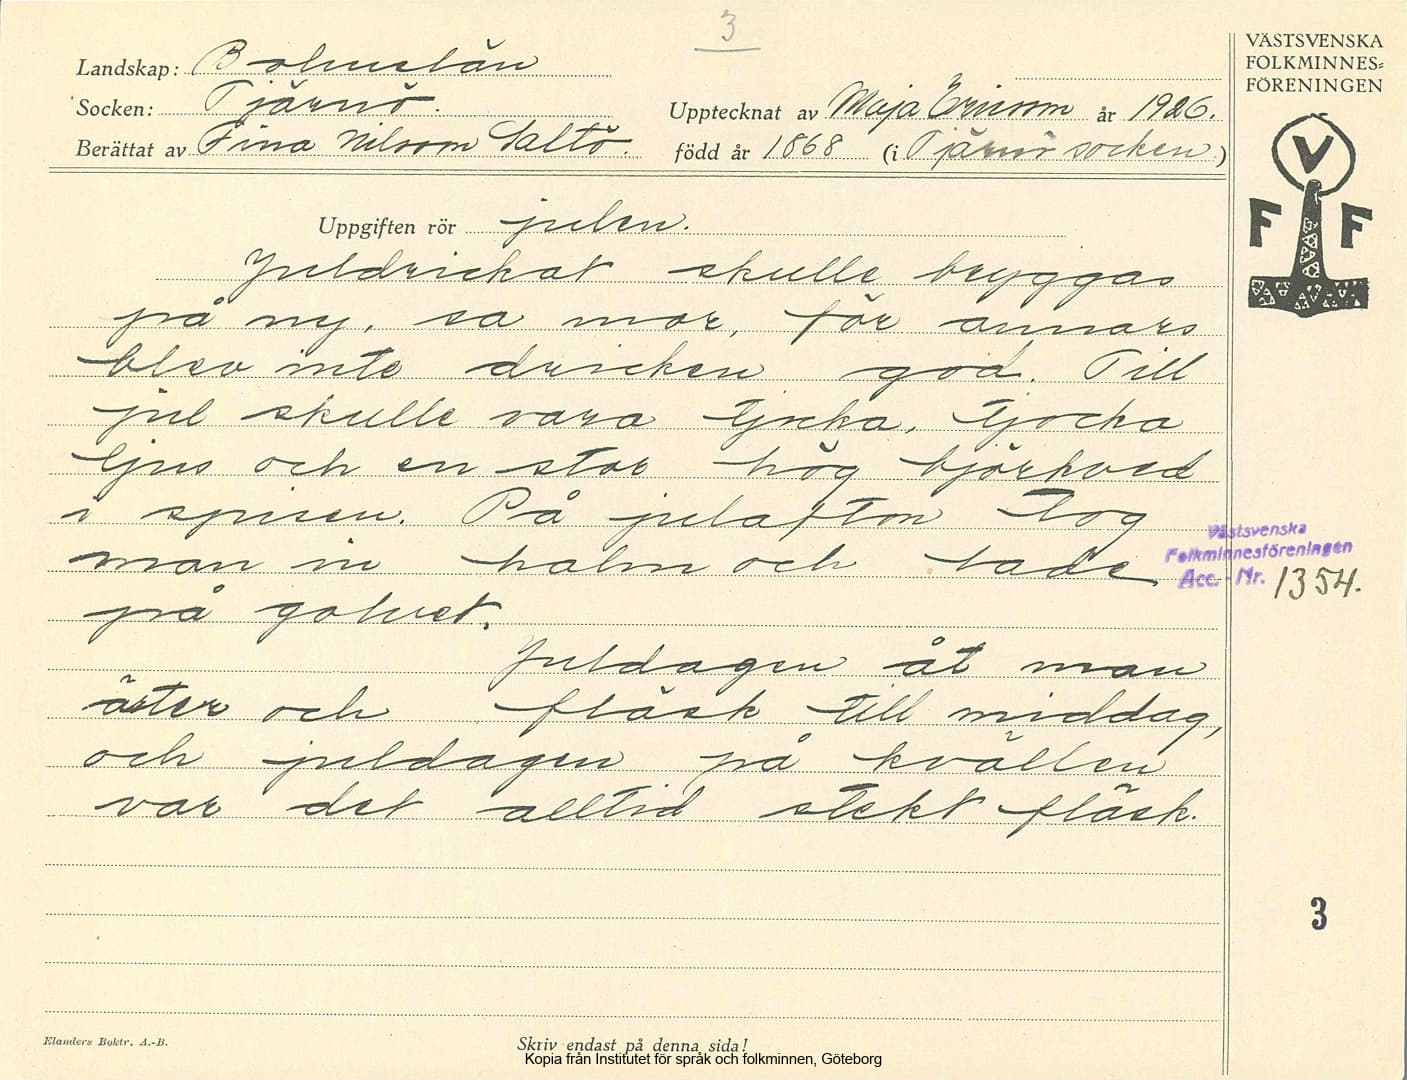 3
VÄSTSVENSKA
FOLKMINNES=
FÖRENINGEN
Landskap: Bohuslän
Socken: Tjärnö.
Upptecknat av Maja Ericson år 1926.
Berättat av Fina Nilsson Saltö.
född år 1868 (i Tjärnö socken.)
V
F F
Uppgiften rör julen.
Juldrickat skulle bryggas
på ny, sa mor, för annars
blev inte dricken god. Till
jul skulle vara tjocka, tjocka
ljus och en stor hög björkved
i spisen. På julafton tog
man in halm och lade
på golvet.
Västsvenska
Folkminnesföreningen
Acc.-Nr. 1354.
Juldagen åt man
ärter och fläsk till middag,
och juldagen på kvällen
var det alltid stekt fläsk.
3
Elanders Boktr. A.-B.
Skriv endast på denna sida!
Kopia från Institutet för språk och folkminnen, Göteborg